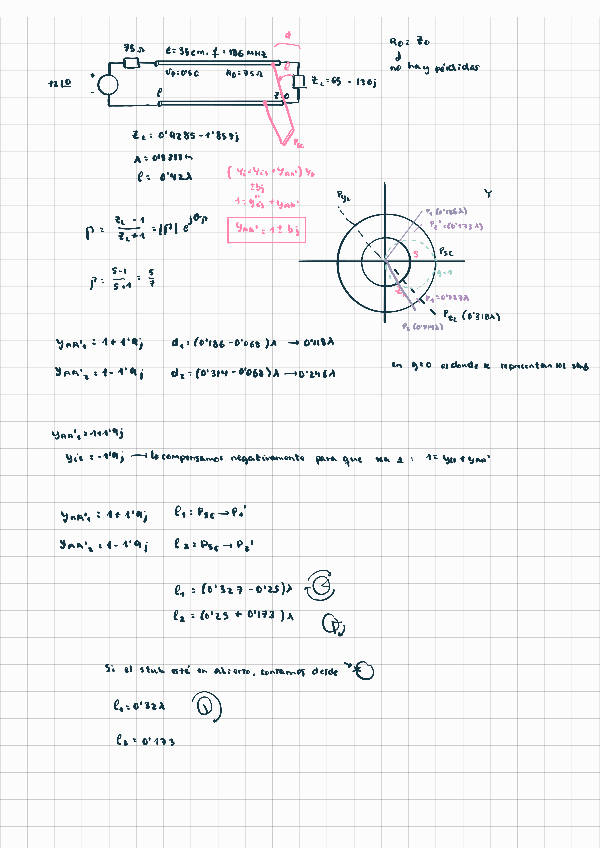 75Ω
l=35cm. f=186 MHz
d
R₀= Z₀
no hay pérdidas
+
-
R₀=75Ω
Z_L=65 - 130j
l
Z_L= 0'9285-1'857j
l= 0'42λ
P_sc
±bj
y_AA' = 1 ± bj
ρ = (z_L - 1)/(z_L + 1) = |ρ| e^jθρ
ρ = (5-1)/(5+1) = 5/7
Y
P_YL
P₁ (0'186λ)
P₂' =(0'173λ)
P_sc
S
P₁'=0'327λ
P_ZL (0'318λ)
P₂ (0'314λ)
y_AA'₁ = 1+1'9j
d₁=(0'186-0'068)λ → 0'118λ
y_AA'₂ = 1-1'9j
d₂=(0'314-0'068)λ → 0'246λ
en g=0 es donde se representan los stub
y_AA'₁=1+1'9j
y_is=-1'9j → lo compensamos negativamente para que sea 1 : 1= y_is + y_AA'
y_AA'₁ = 1+1'9j
l₁=P_sc → P₁'
y_AA'₂ = 1-1'9j
l₂=P_sc → P₂'
l₁ = (0'327 - 0'25)λ
l₂ = (0'25 + 0'173)λ
Si el stub está en abierto, contamos desde
l₁=0'32λ
l₂ = 0'173